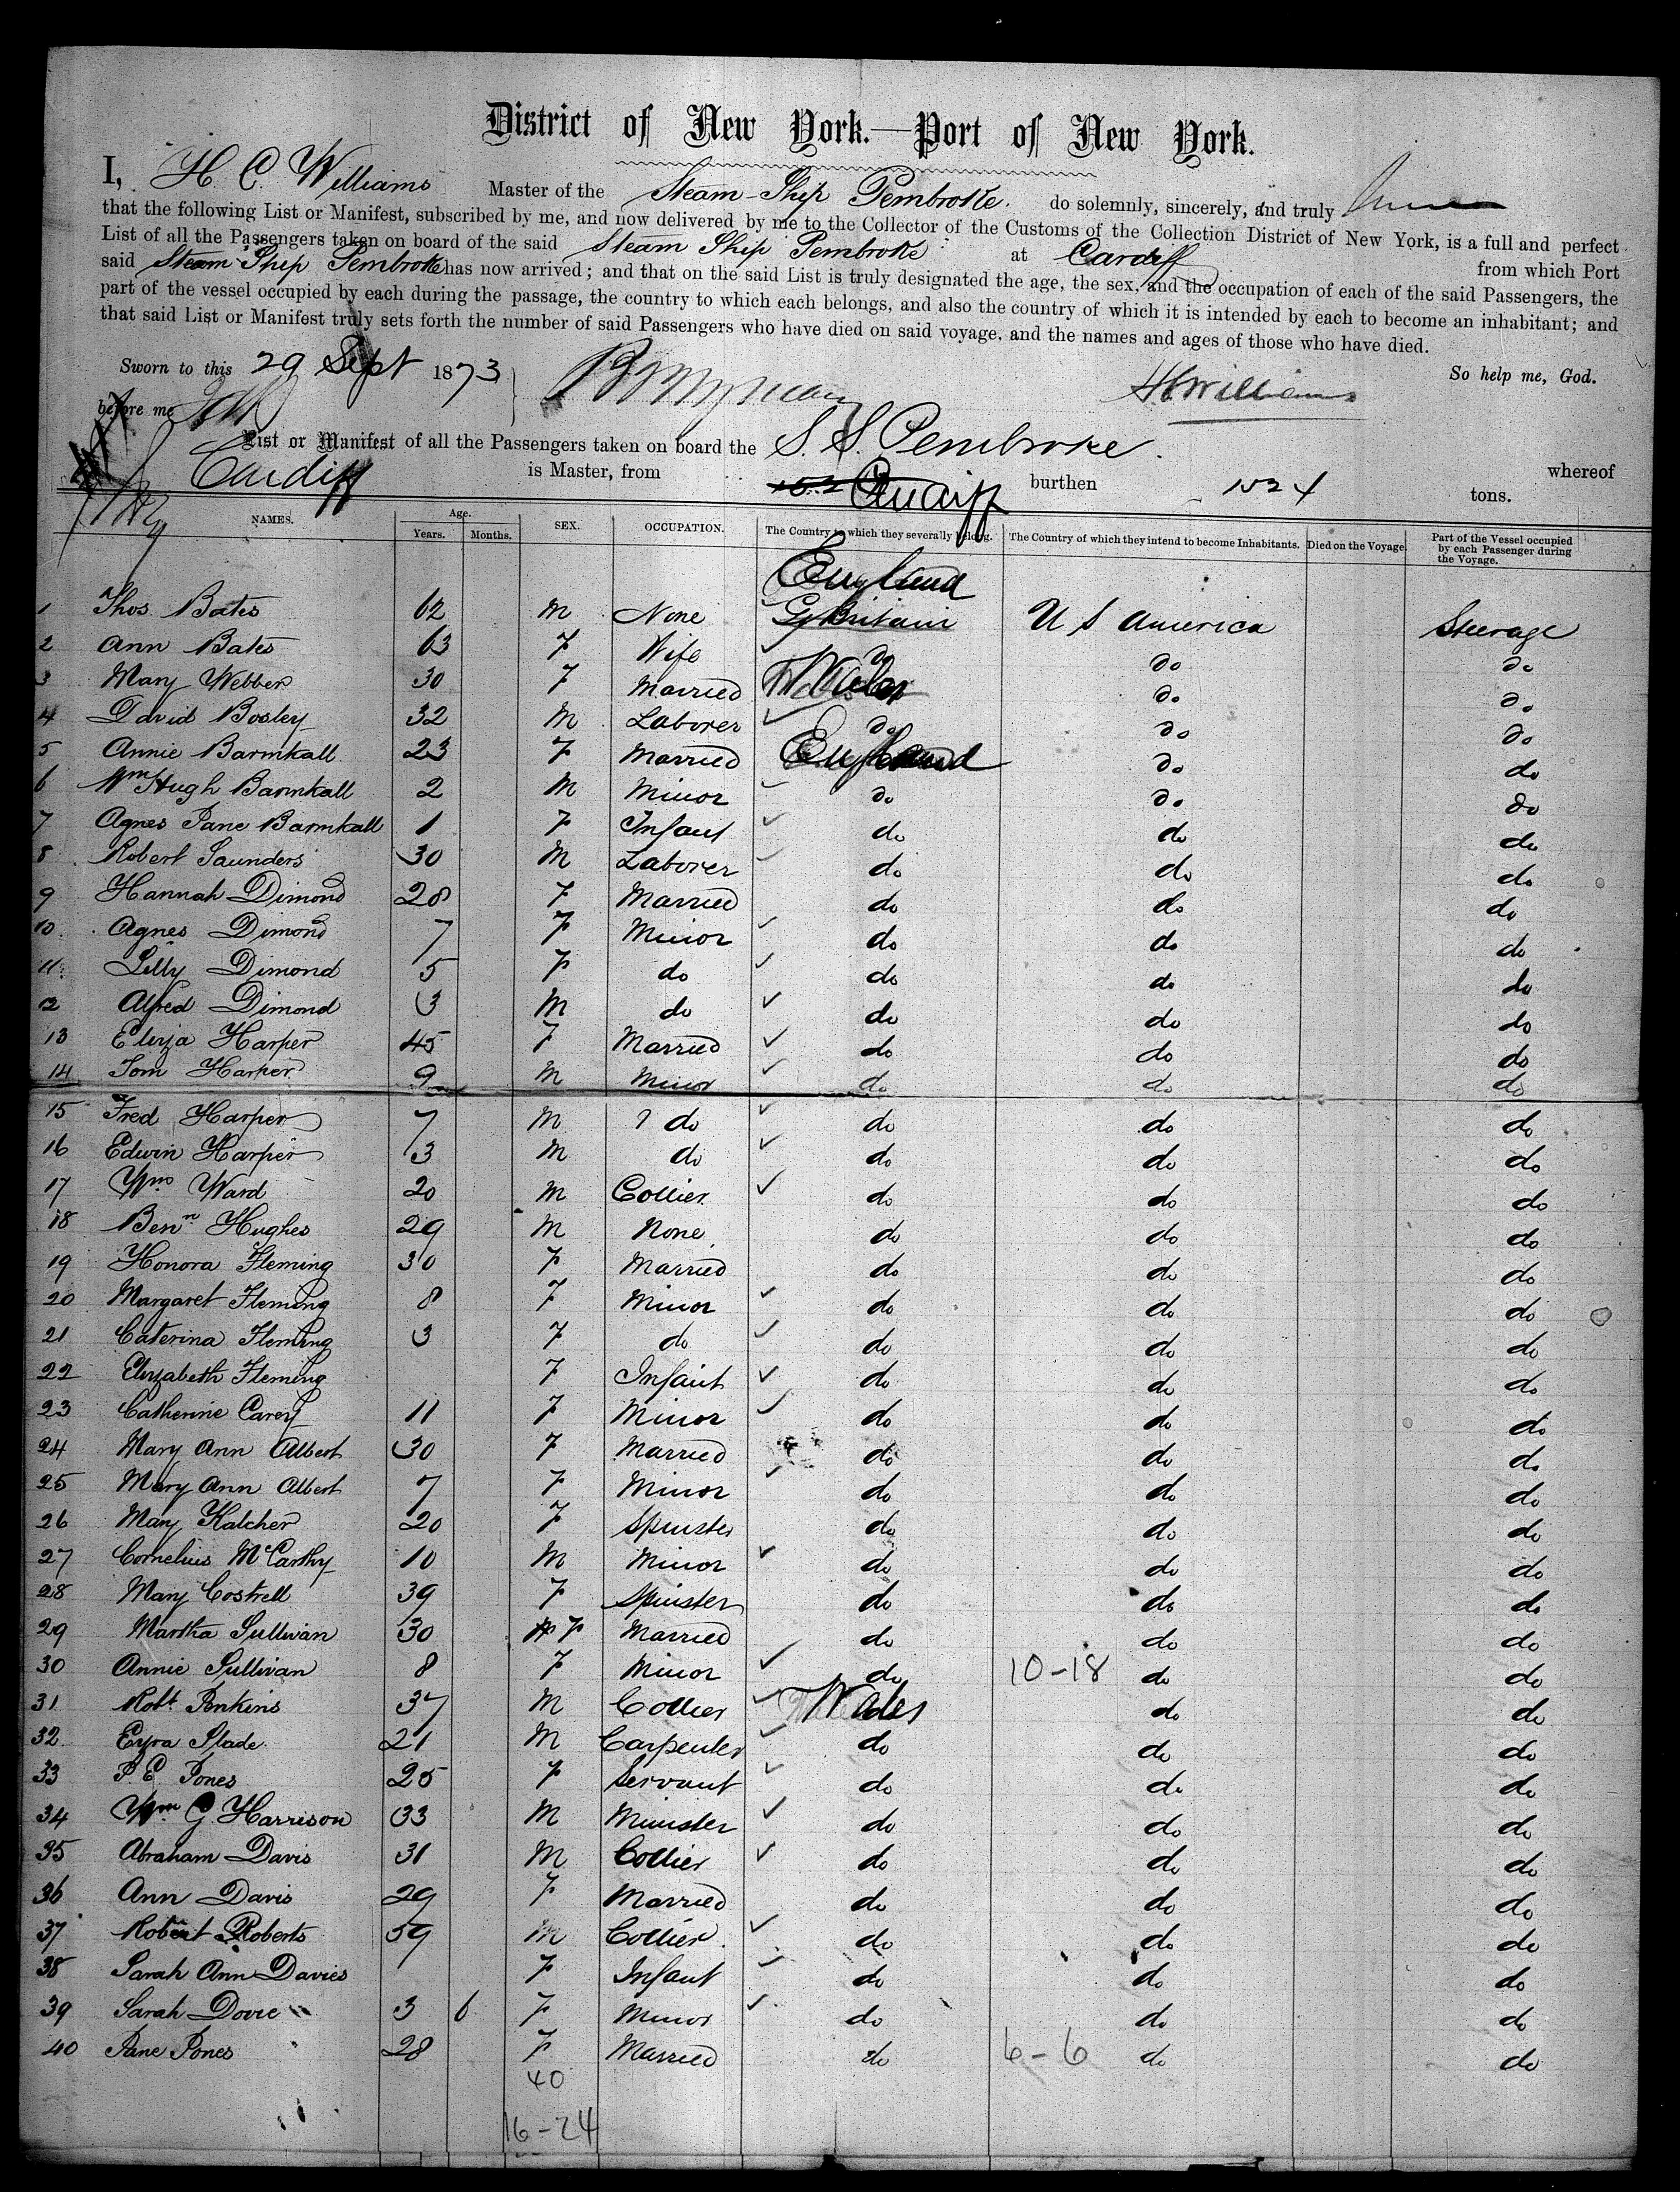 District of New York.—Port of New York.
I, H. C. Williams Master of the Steam-Ship Pembroke. do solemnly, sincerely, and truly
that the following List or Manifest, subscribed by me, and now delivered by me to the Collector of the Customs of the Collection District of New York, is a full and perfect
List of all the Passengers taken on board of the said Steam Ship Pembroke at Cardiff from which Port
said Steam Ship Pembroke has now arrived; and that on the said List is truly designated the age, the sex, and the occupation of each of the said Passengers, the
part of the vessel occupied by each during the passage, the country to which each belongs, and also the country of which it is intended by each to become an inhabitant; and
that said List or Manifest truly sets forth the number of said Passengers who have died on said voyage, and the names and ages of those who have died.
Sworn to this 29 Sept 1873 So help me, God.
before me HCWilliams
List or Manifest of all the Passengers taken on board the S. S. Pembroke. whereof
Cardiff is Master, from Cardiff burthen 1524 tons.
NAMES. Age. Years. Months. SEX. OCCUPATION. The Country to which they severally belong. The Country of which they intend to become Inhabitants. Died on the Voyage. Part of the Vessel occupied by each Passenger during the Voyage.
England
1 Thos. Bates 62 M None Gt Britain U S America Steerage
2 Ann Bates 63 F Wife do do do
3 Mary Webber 30 F Married Wales do do
4 David Bosley 32 M Laborer do do do
5 Annie Barmkall 23 F Married England do do
6 Wm Hugh Barmkall 2 M Minor do do do
7 Agnes Jane Barmkall 1 F Infant do do do
8 Robert Saunders 30 M Laborer do do do
9 Hannah Dimond 28 F Married do do do
10 Agnes Dimond 7 F Minor do do do
11 Lilly Dimond 5 F do do do do
12 Alfred Dimond 3 M do do do do
13 Eliza Harper 45 F Married do do do
14 Tom Harper 9 M Minor do do do
15 Fred Harper 7 M do do do do
16 Edwin Harper 3 M do do do do
17 Wm Ward 20 M Collier do do do
18 Benn Hughes 29 M None do do do
19 Honora Fleming 30 F Married do do do
20 Margaret Fleming 8 F Minor do do do
21 Caterina Fleming 3 F do do do do
22 Elizabeth Fleming F Infant do do do
23 Catherine Carey 11 F Minor do do do
24 Mary Ann Albert 30 F Married do do do
25 Mary Ann Albert 7 F Minor do do do
26 Mary Kalcher 20 F Spinster do do do
27 Cornelius McCarthy 10 M Minor do do do
28 Mary Costrell 39 F Spinster do do do
29 Martha Sullivan 30 F Married do do do
30 Annie Sullivan 8 F Minor do 10-18 do do
31 Robt. Jenkins 37 M Collier Wales do do
32 Ezra Slade 21 M Carpenter do do do
33 P. E. Jones 25 F Servant do do do
34 Wm G. Harrison 33 M Minister do do do
35 Abraham Davis 31 M Collier do do do
36 Ann Davis 29 F Married do do do
37 Robert Roberts 59 M Collier do do do
38 Sarah Ann Davies F Infant do do do
39 Sarah Dovre 3 6 F Minor do do do
40 Jane Jones 28 F Married do 6-6 do do
40
16-24